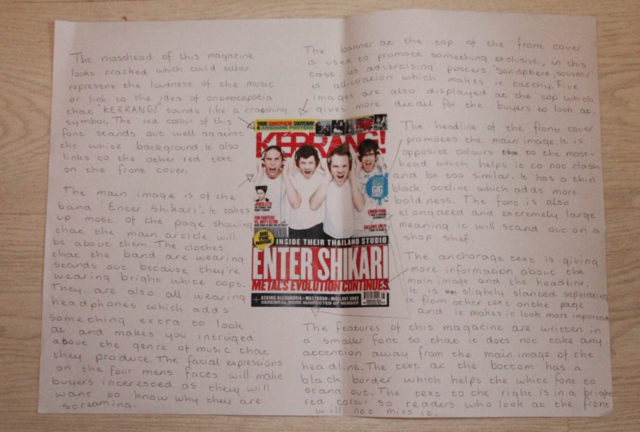 The masshead of this magazine
looks cracked which could either
represent the loudness of the music
or link to the idea of onomatopoeia
that 'KERRANG!' sounds like a crashing
symbol. The red colour of this
font stands out well against
the white background. It also
links to the other red text
on the front cover.
The main image is of the
band 'Enter Shikari'. It takes
up most of the page showing
that the main article will
be about them. The clothes
that the band are wearing
stands out because they're
wearing bright white tops.
They are also all wearing
headphones which adds
something extra to look
at and makes you intruged
about the genre of music that
they produce. The facial expressions
on the four mens faces will make
buyers interested as they will
want to know why they are
screaming.
The banner at the top of the front cover
is used to promote something exclusive, in this
case its advertising posters. 'Sonisphere souvenir'
is alliteration which makes it catchy. Five
images are also displayed at the top which
gives more detail for the buyers to look at.
KERRANG!
INSIDE THEIR THAILAND STUDIO
ENTER SHIKARI
METAL'S EVOLUTION CONTINUES.
ASKING ALEXANDRIA • MASTODON •
The headline of the front cover
promotes the main image. It is
opposite colours to the mast-
head which helps it to not clash
and be too similar. It has a thin
black outline which adds more
boldness. The font is also
elongated and extremely large
meaning it will stand out on a
shop shelf.
The anchorage text is giving
more information about the
main image and the headline.
It is slightly slanted separating
it from other text on the page
and it makes it look more important
The features of this magazine are written in
a smaller font so that it does not take any
attention away from the main image of the
headline. The text at the bottom has a
black border which helps the white font to
stand out. The text to the right is in a bright
red colour so readers who look at the front
will not miss it.